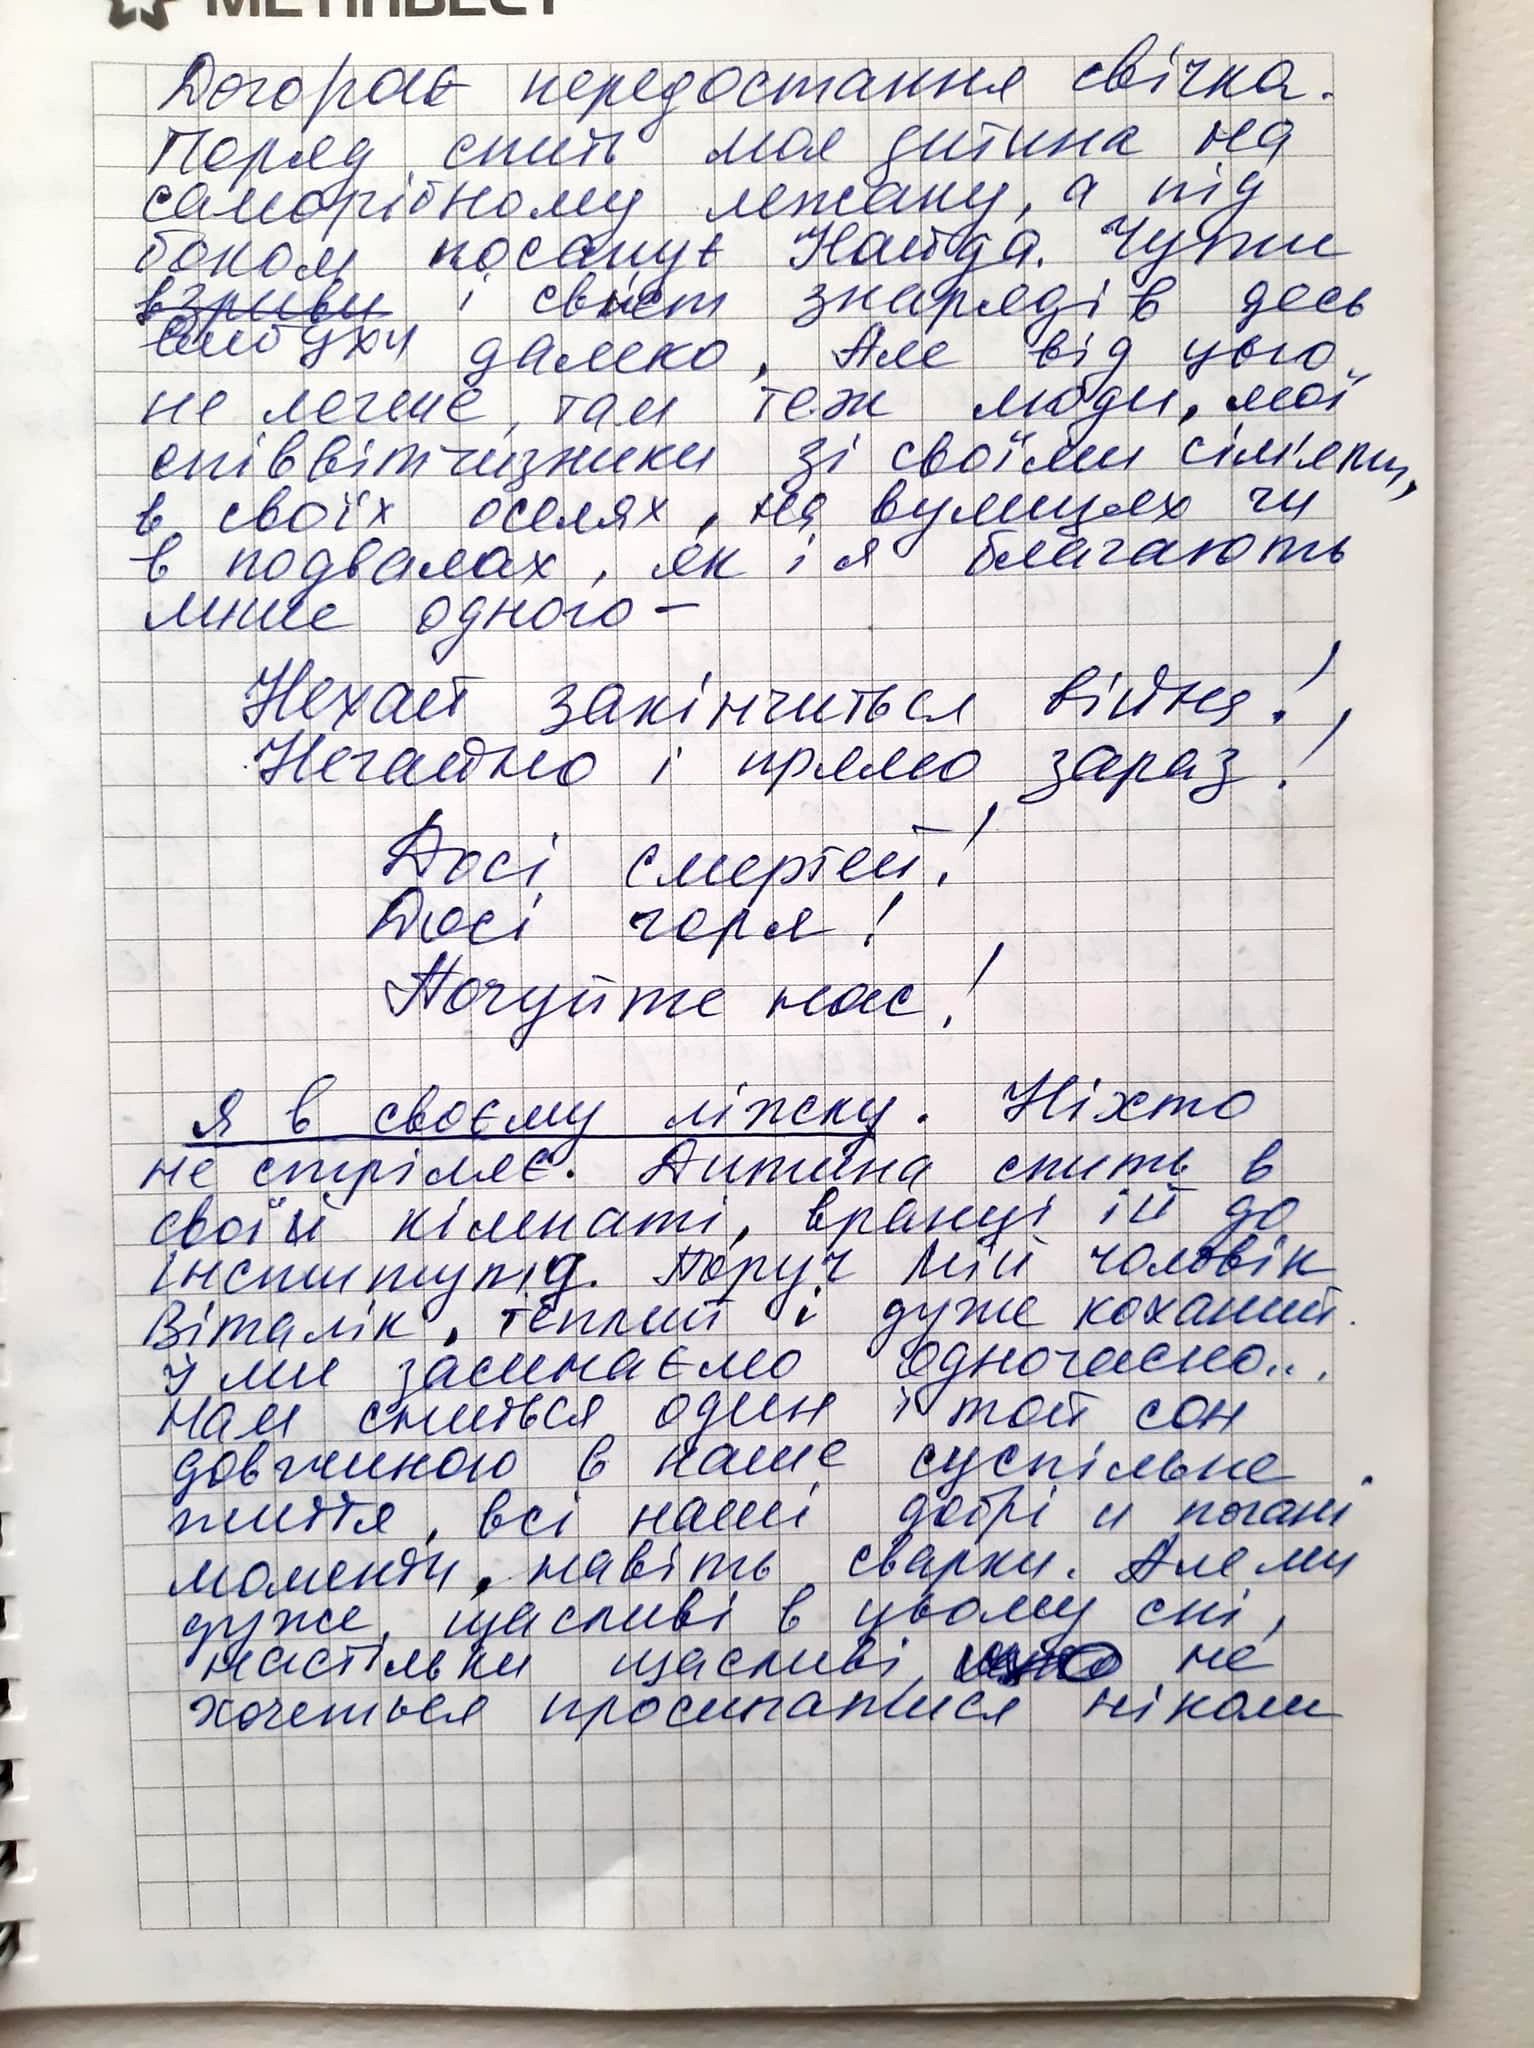 МЕТІНВЕСТ
Догорає передостання свічка.
Поряд спить моя дитина на
саморібному лежаку, а під
боком посапує Найда. Чутни
взриви і свист знарядів десь
вибухи далеко, Але від цього
не легше, там теж люди, мої
співвітчизники зі своїми сім'ями,
в своїх оселях, на вулицях чи
в подвалах, як і я благають
лише одного –
Нехай закінчиться війна!
Негайно і прямо зараз!
Досі смертей!
Досі горя!
Почуйте нас!
Я в своєму ліжку. Ніхто
не стріляє. Дитина спить в
своїй кімнаті, вранці їй до
інституту. Поруч мій чоловік
Віталік, теплий і дуже коханий.
І ми засинаємо одночасно...
Нам сниться один і той сон
довжиною в наше суспільне
життя, всі наші добрі и погані
моменти, навіть сварки. Але ми
дуже щасливі в цьому сні,
настільки щасливі, що не
хочеться просипатися ніколи